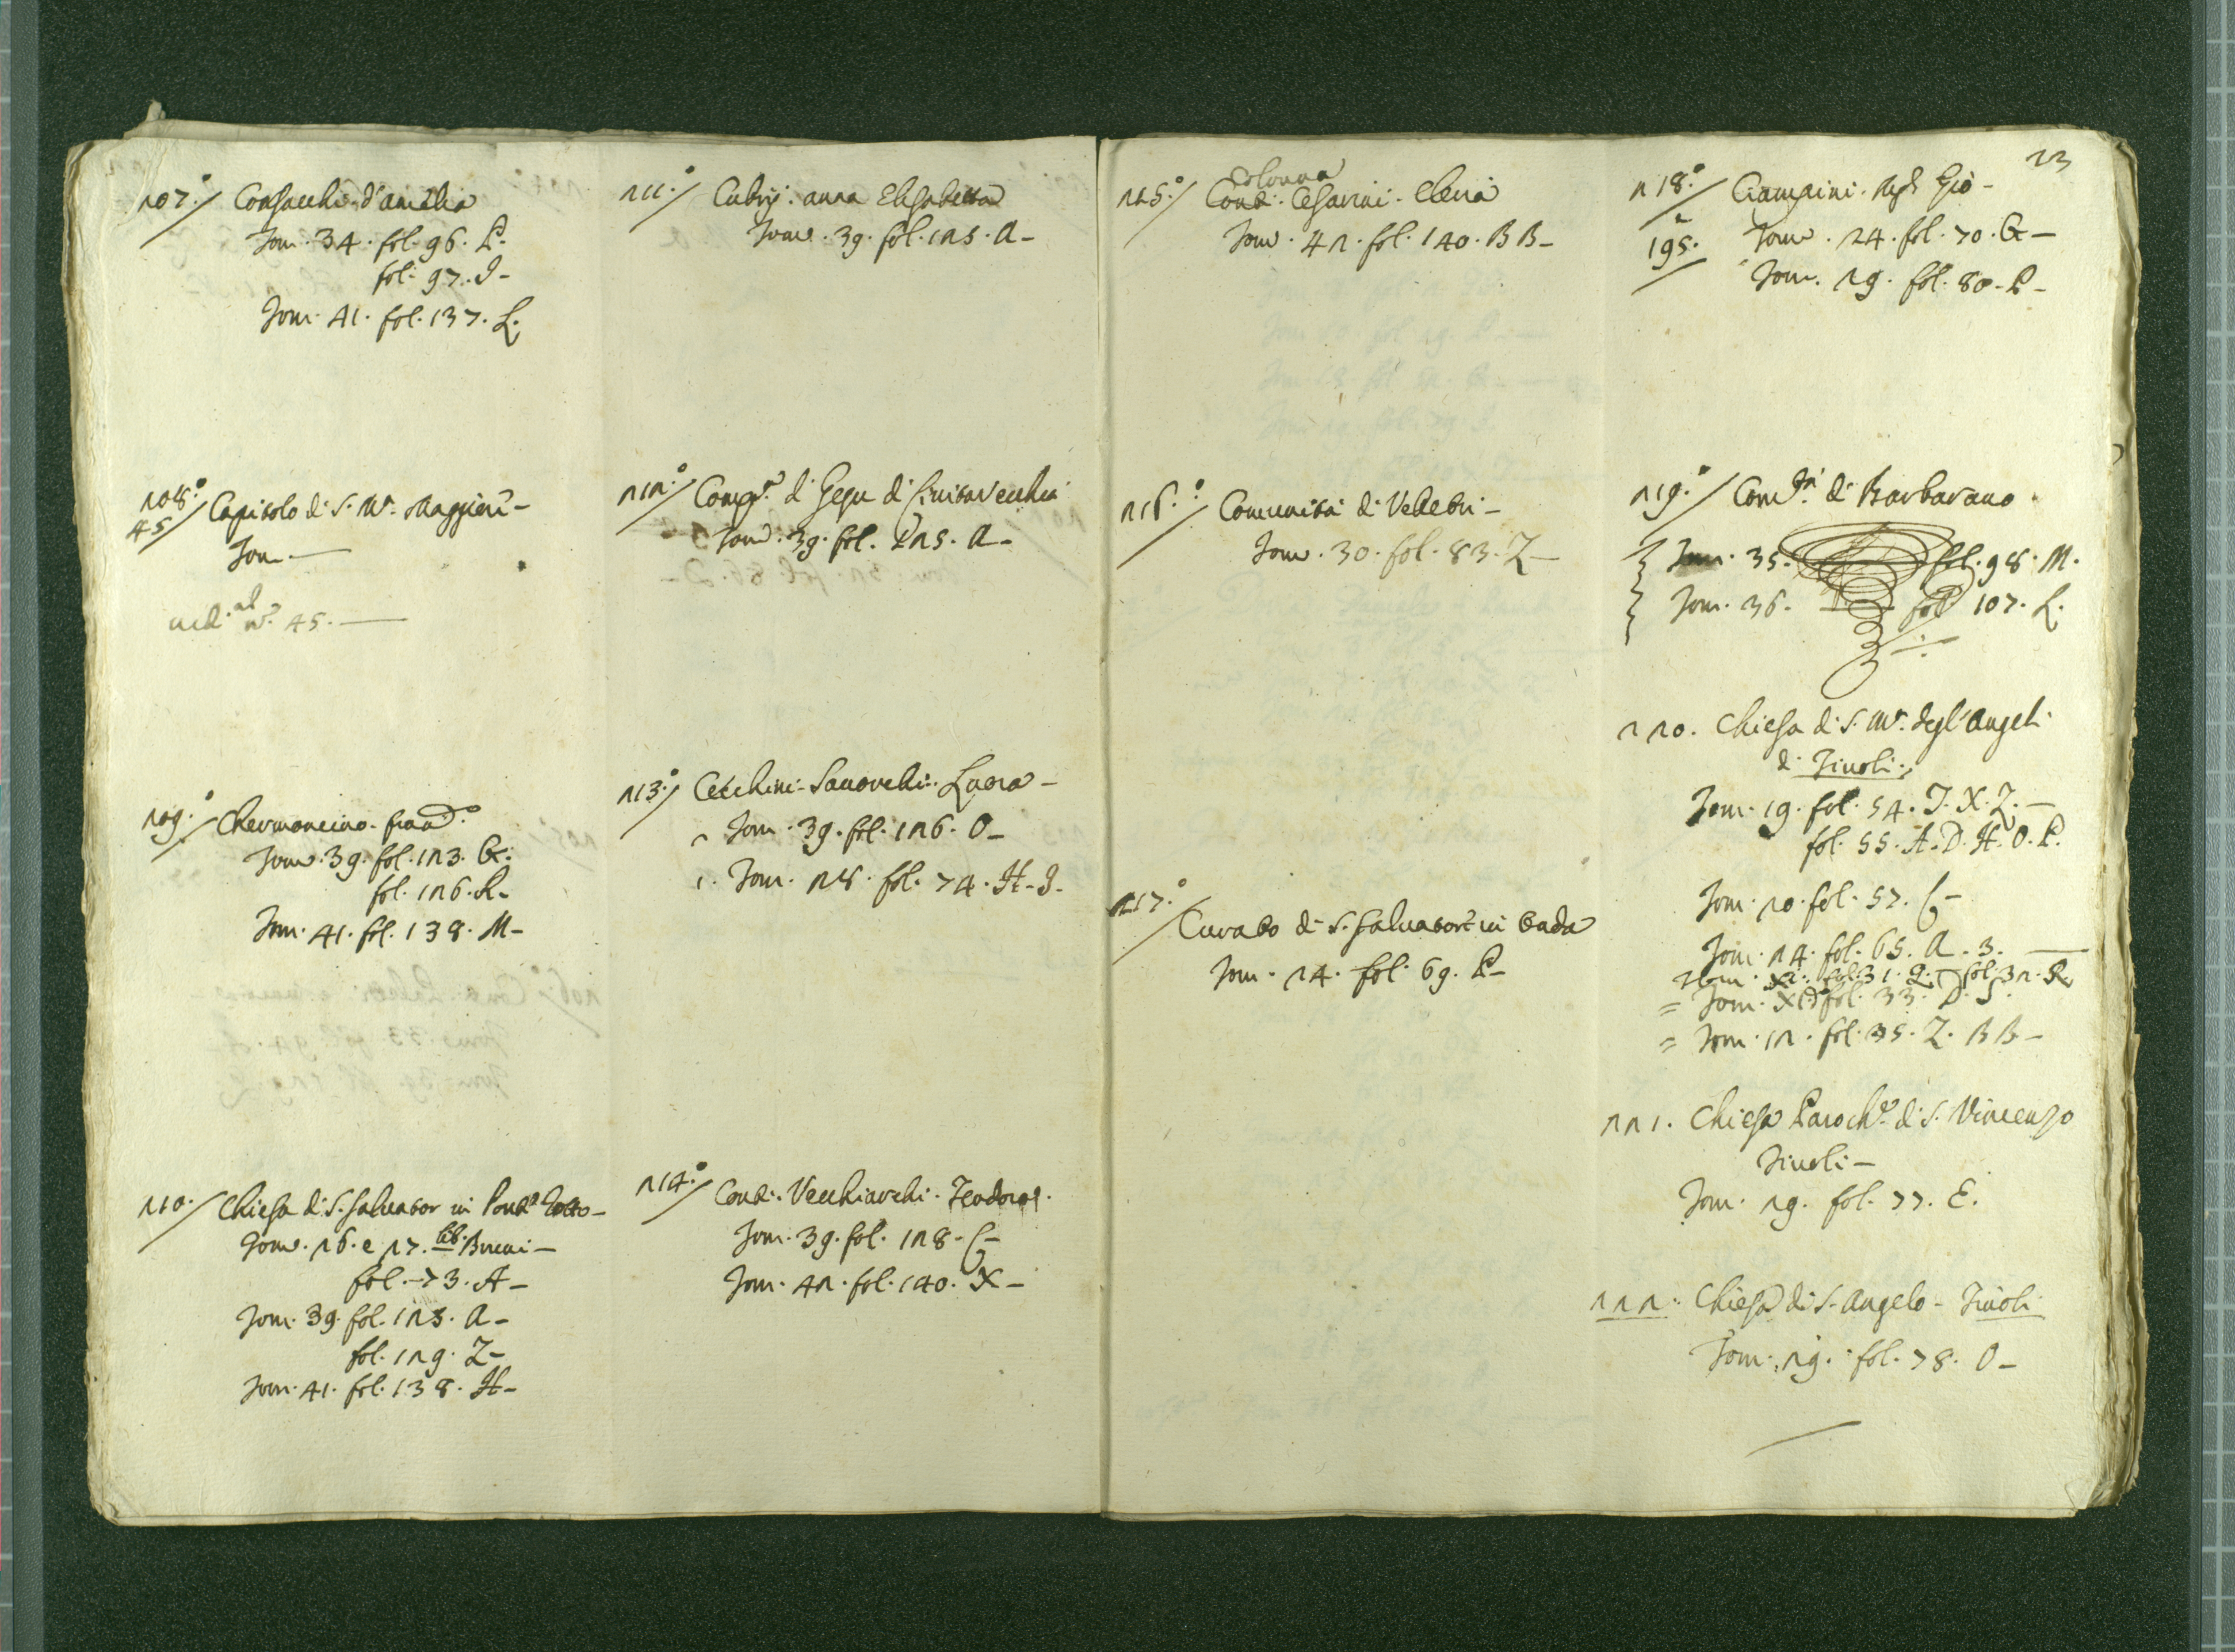 207.° Consacchi d'amelia
Tom. 34. fol. 96. P.
fol. 97. I-
Tom. 41. fol. 137. L.
208.° Capitolo di S. Mª. Maggiore-
45
Tom.-
ved. al n.° 45.-
209.° Chermoncino. fran.co
Tom. 39. fol. 123. G.
fol. 126. R-
Tom. 41. fol. 138. M-
210. Chiesa di S. Salvator in Ponte Rotto-
Tom. 26. e 27. lib. Brevi-
fol. 73. A-
Tom. 39. fol. 125. A-
fol. 129. Z-
Tom. 41. fol. 138. H-
211.° Cubrij. anna Elisabetta
Tom. 39. fol. 125. A-
212.° Comp.ª di Gesu di Civitavecchia
Tom. 39. fol. 125. A-
213.° Cecchini-Sanorchi. Lucra-
2 Tom. 39. fol. 126. O-
1. Tom. 28. fol. 74. H-I-
214.° Conti. Vecchiarchi. Teodora.
Tom. 39. fol. 128. C-
Tom. 42. fol. 140. X-
Colonna
215.° Conti. Cesarini. Elena
Tom. 42. fol. 140. BB-
216.° Comunità di Velletri-
Tom. 30. fol. 83. Z-
217.° Curato di S. Salvatore in Onda
Tom. 24. fol. 69. P-
23
218.° Ciampini. Gio-
195. Tom. 24. fol. 70. G-
Tom. 29. fol. 80. P-
219.° Com.tà di Barbarano
Tom. 35. fol. 98. M.
Tom. 36. fol. 107. L.
220. Chiesa di S. Mª. degl'Angeli
di Tivoli.
Tom. 19. fol. 54. T. X. Z.-
fol. 55. A. D. H. O. P.
Tom. 20. fol. 57. C-
Tom. 24. fol. 65. A. 3.-
Tom. XI. fol. 31. Q. fol. 32. R
= Tom. XI fol. 33. D. S.
= Tom. 12. fol. 35. Z. BB-
221. Chiesa Paroch.e di S. Vincenzo
Tivoli-
Tom. 29. fol. 77. E.
222. Chiesa di S. Angelo- Tivoli
Tom. 29. fol. 78. O-